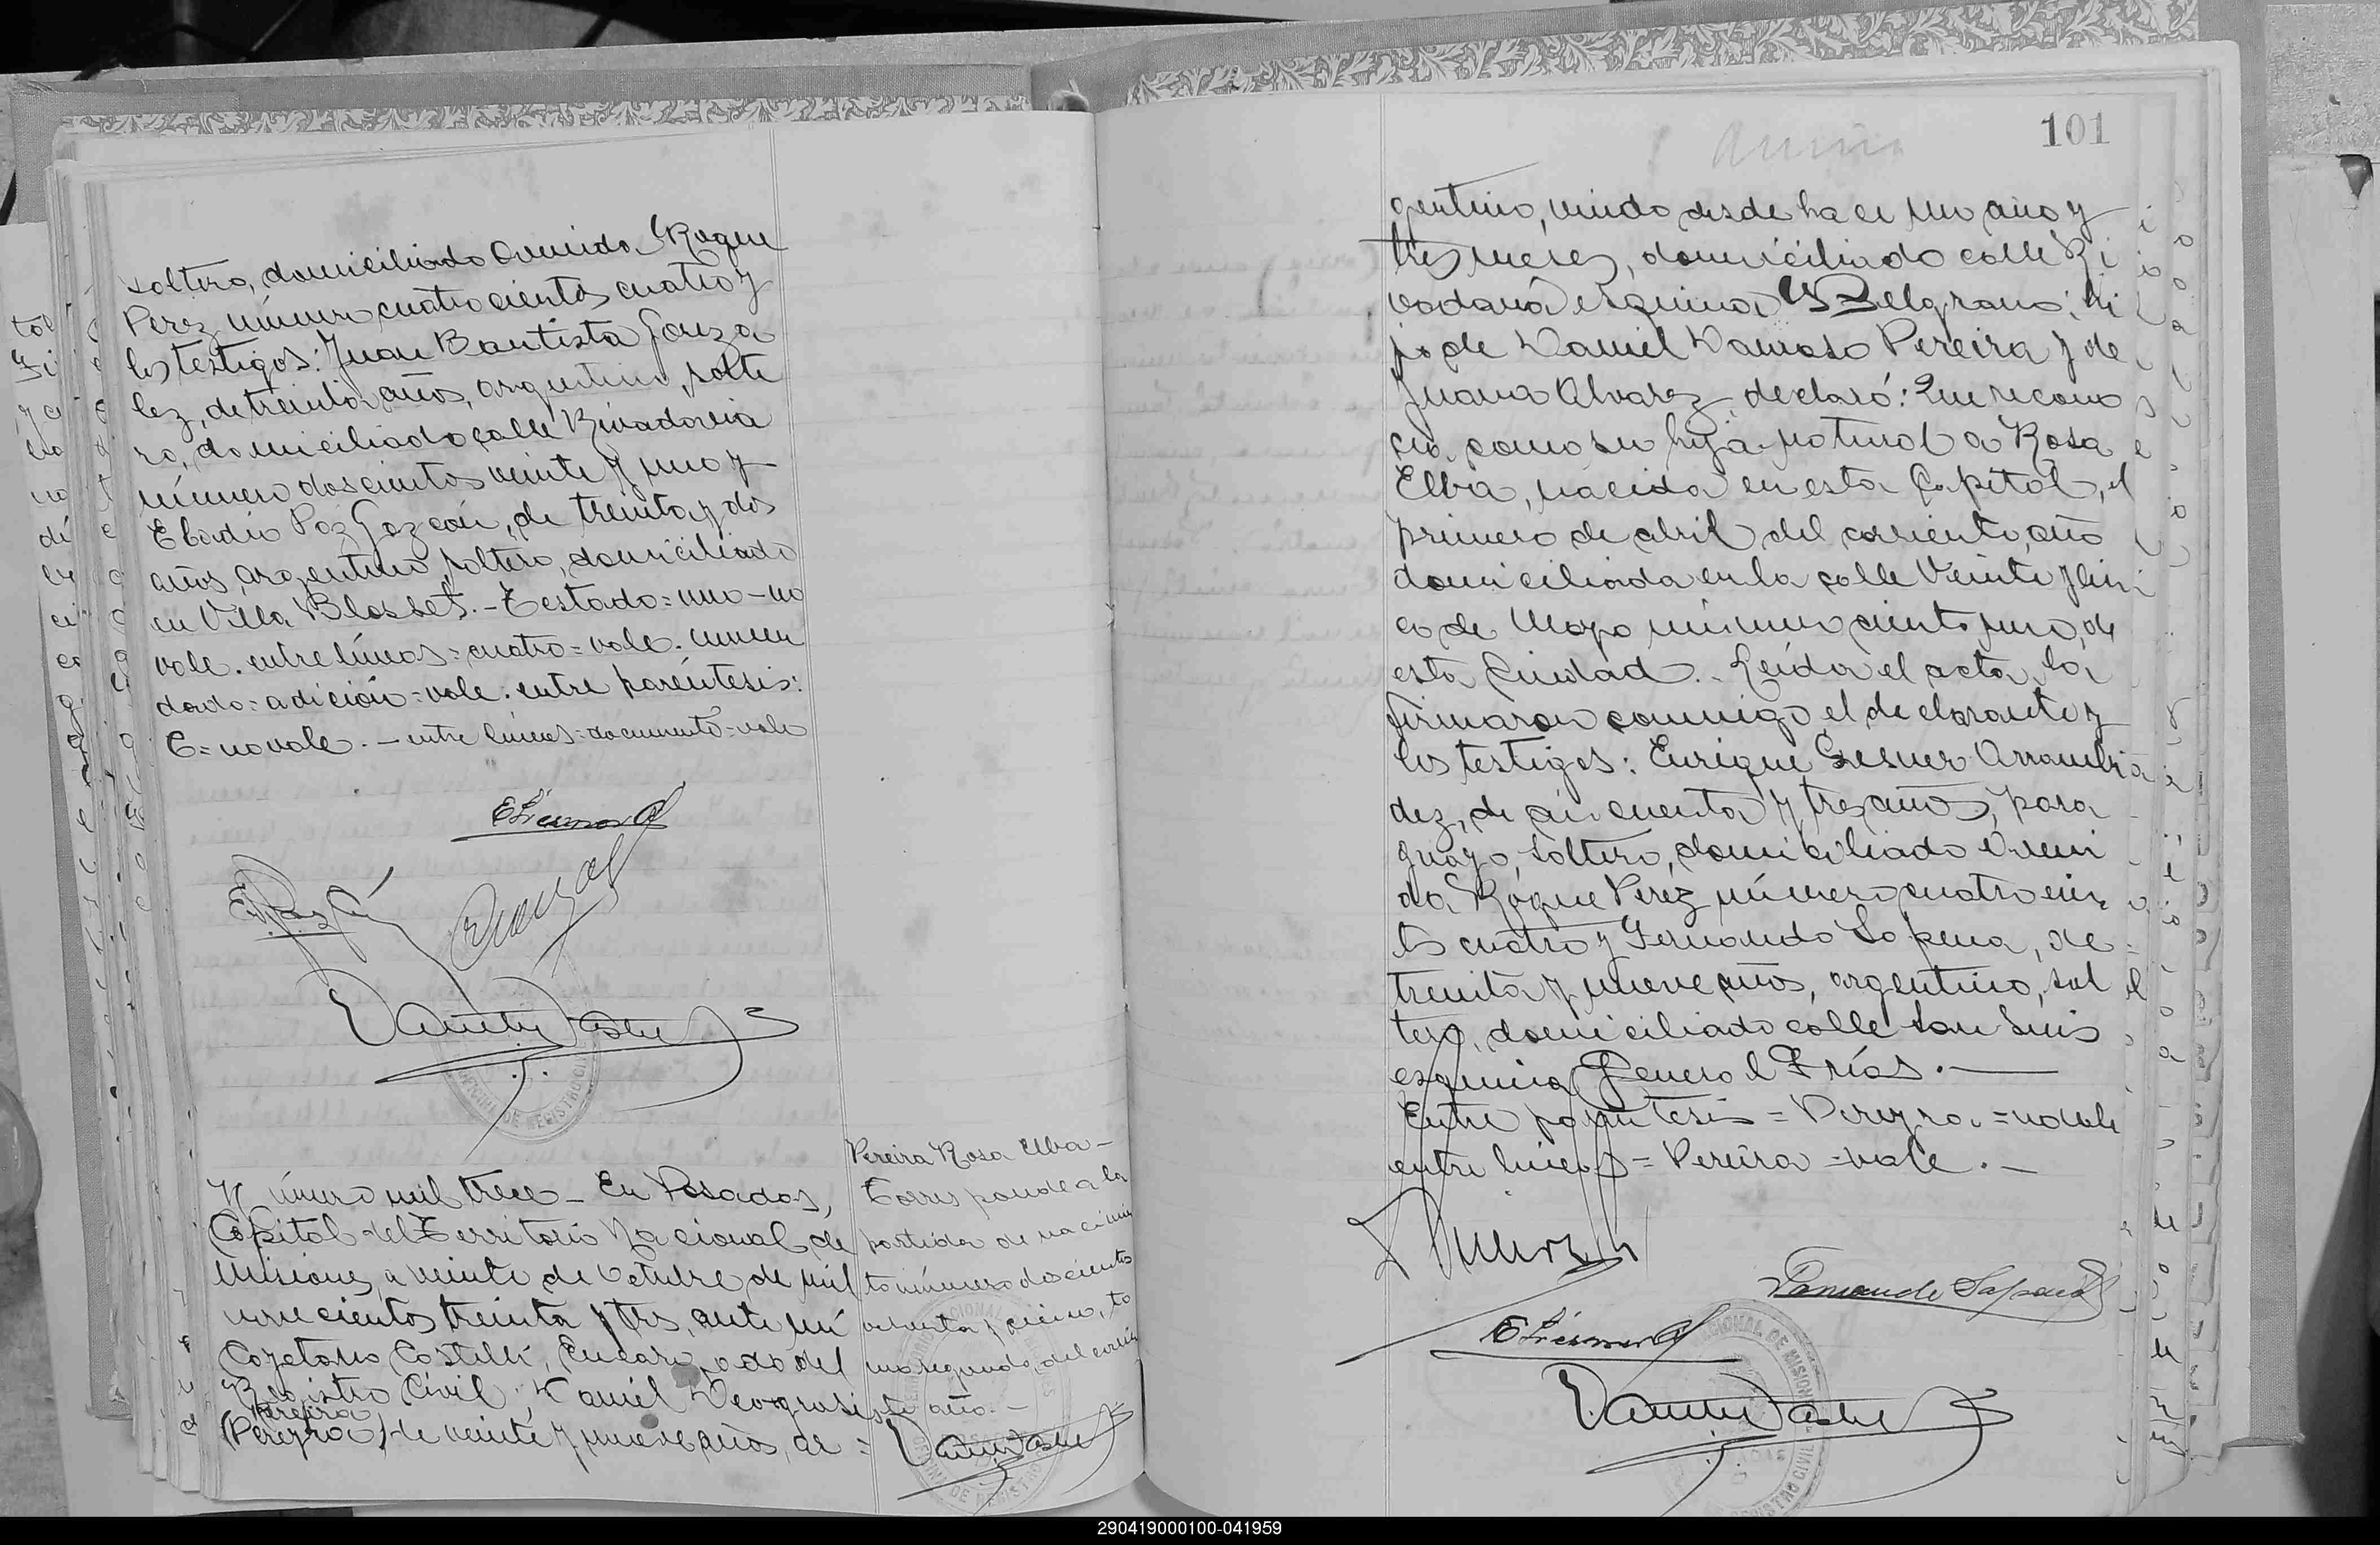 soltero, domiciliado Avenida Roque
Perez número cuatrocientos cuatro y
los testigos: Juan Bautista Gonza
lez, de treinta años, argentino, solte
ro, domiciliado calle Rivadavia
número doscientos veinte y uno y
Eladio Paz Gazcón, de treinta y dos
años, argentino, soltero, domiciliado
en Villa Blosset.- Testado=uno-no
vale. entre líneas=cuatro=vale. enmen
dado=adición=vale. entre paréntesis:
C=no vale.- entre líneas=documento=vale
Número mil trece- En Posadas,
Capital del Territorio Nacional de
Misiones, a veinte de Octubre de mil
novecientos treinta y tres, ante mí
Cayetano Castelli, Encargado del
Registro Civil, Daniel Deogras
Pereira
(Pereyra) de veinte y nueve años, ar=
Pereira Rosa Elba-
Corresponde a la
partida de nacimien
to número doscientos
ochenta y cinco, to
mo segundo, del corrien
te año.-
101
gentino, viudo desde hace un año y
tres meses, domiciliado calle Ri
vadavia esquina Belgrano; hi
jo de Daniel Damaso Pereira y de
Juana Alvarez, declaró: Que recono
cía como su hija natural a Rosa
Elba, nacida en esta Capital, el
primero de abril del corriente año
domiciliada en la calle Veinte y cin
co de Mayo número ciento uno, de
esta Ciudad.- Leída el acta, la
firmaron conmigo el declarante y
los testigos: Enrique Gesner Arrambi
dez, de cincuenta y tres años, para
guayo, soltero, domiciliado Aveni
da Roque Perez número cuatrocien
tos cuatro y Fernando Sapena, de
treinta y nueve años, argentino, sol
tero, domiciliado calle San Luis
esquina General Frías.-
Entre paréntesis=Pereyra.=no vale
entre líneas=Pereira=vale.-
Fernando Sapena
290419000100-041959